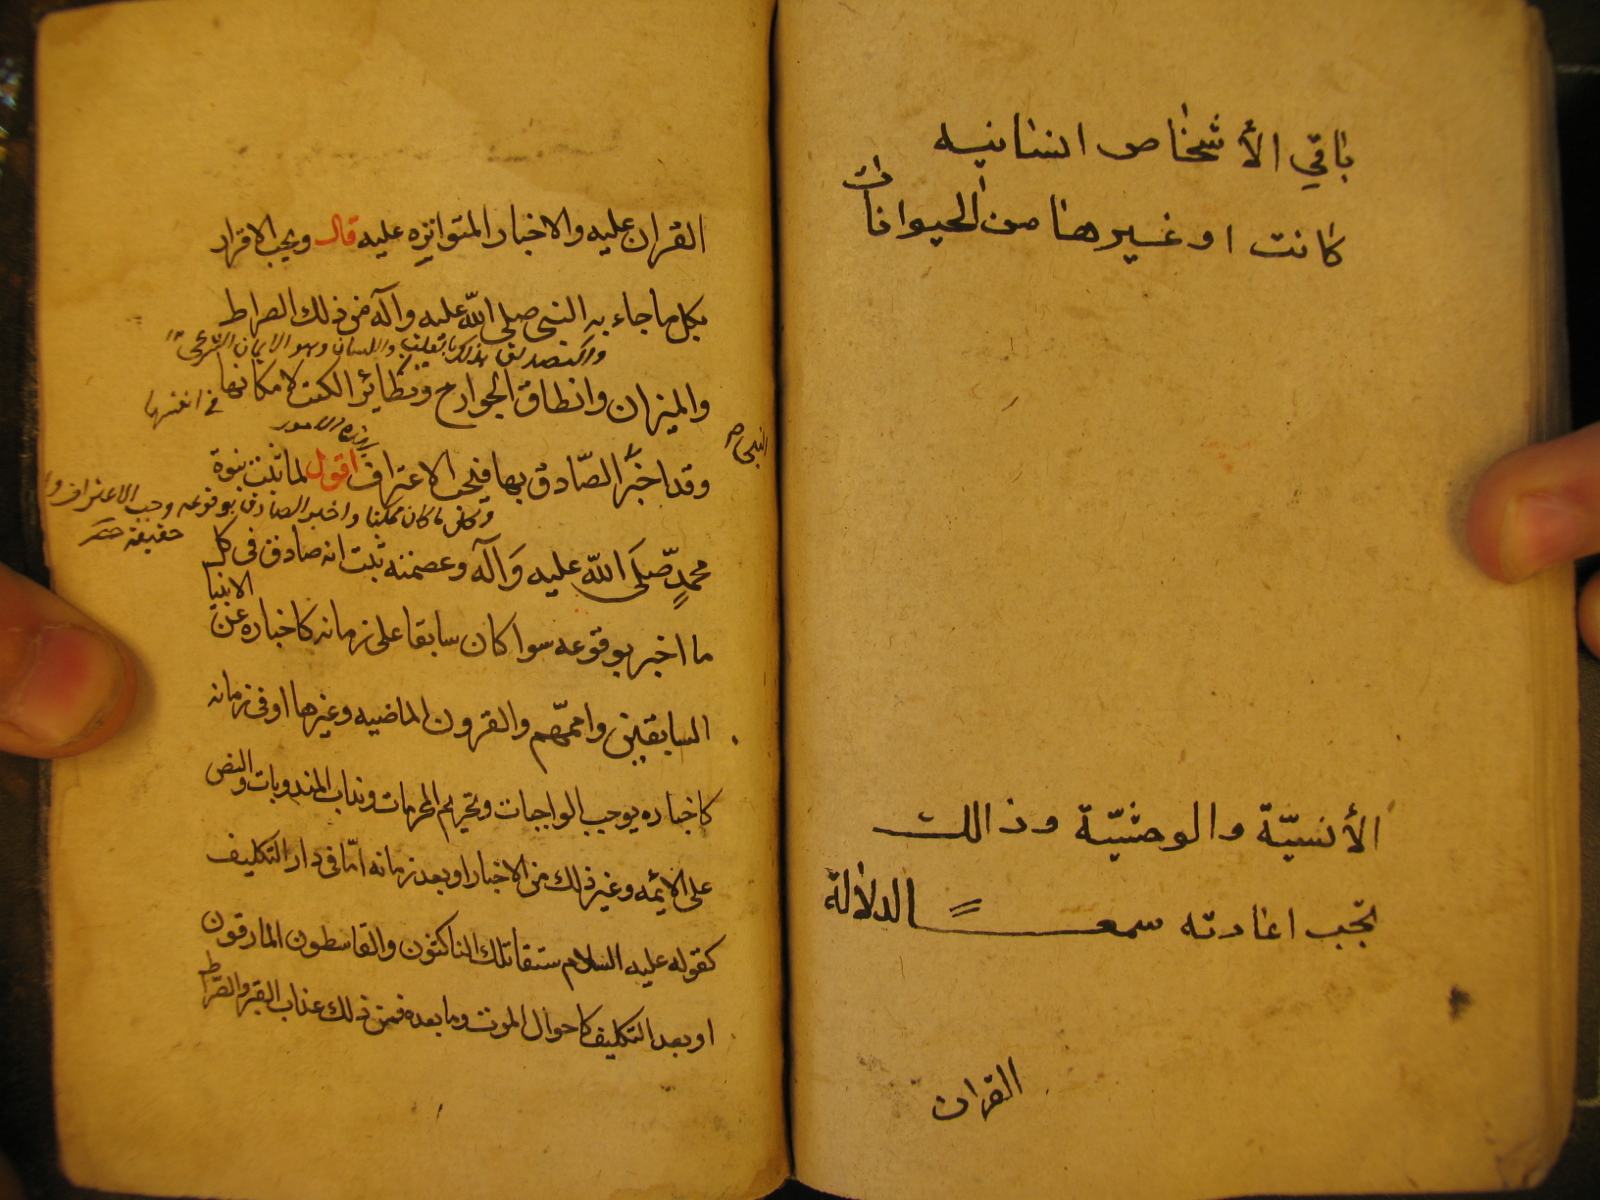 باقي الأشخاص انسانيه
كانت او غيرها من الحيوانات
الأنسيّة والوحشيّة وذالك
تجب اعادته سمعاً لدلالة
القران
القران عليه والاخبار المتواتره عليه قال ويجب الاقرار
بكل ما جاء به النبى صلى الله عليه وآله فمن ذلك الصراط
والتصديق بذلك بالقلب واللسان وهو الايمان الشرعى
والميزان وانطاق الجوارح وتطائر الكتب لامكانها
فى انفسها
بهذه الامور
وقد اخبر الصّادق بها فيجب الاعتراف اقول لما ثبت نبوة
النبى
وكلما كان ممكنا واخبر الصادق بوقوعه وجب الاعتراف و
حقيقة
محمدٍ صَلّى الله عليه وَآله وعصمته ثبت انه صادق فى كل
الانبيا
ما اخبر بوقوعه سوا كان سابقا على زمانه كاخباره عن
السابقين واممهم والقرون الماضيه وغيرها او فى زمانه
كاخباره بوجب الواجبات وتحريم المحرمات وندب المندوبات والنص
على الائمه وغير ذلك من الاخبار او بعد زمانه امّا فى دار التكليف
كقوله عليه السلام ستقاتلك الناكثون والقاسطون المارقون
او بعد التكليف كاحوال الموت وما بعده فمن ذلك عذاب القبر والصّراط